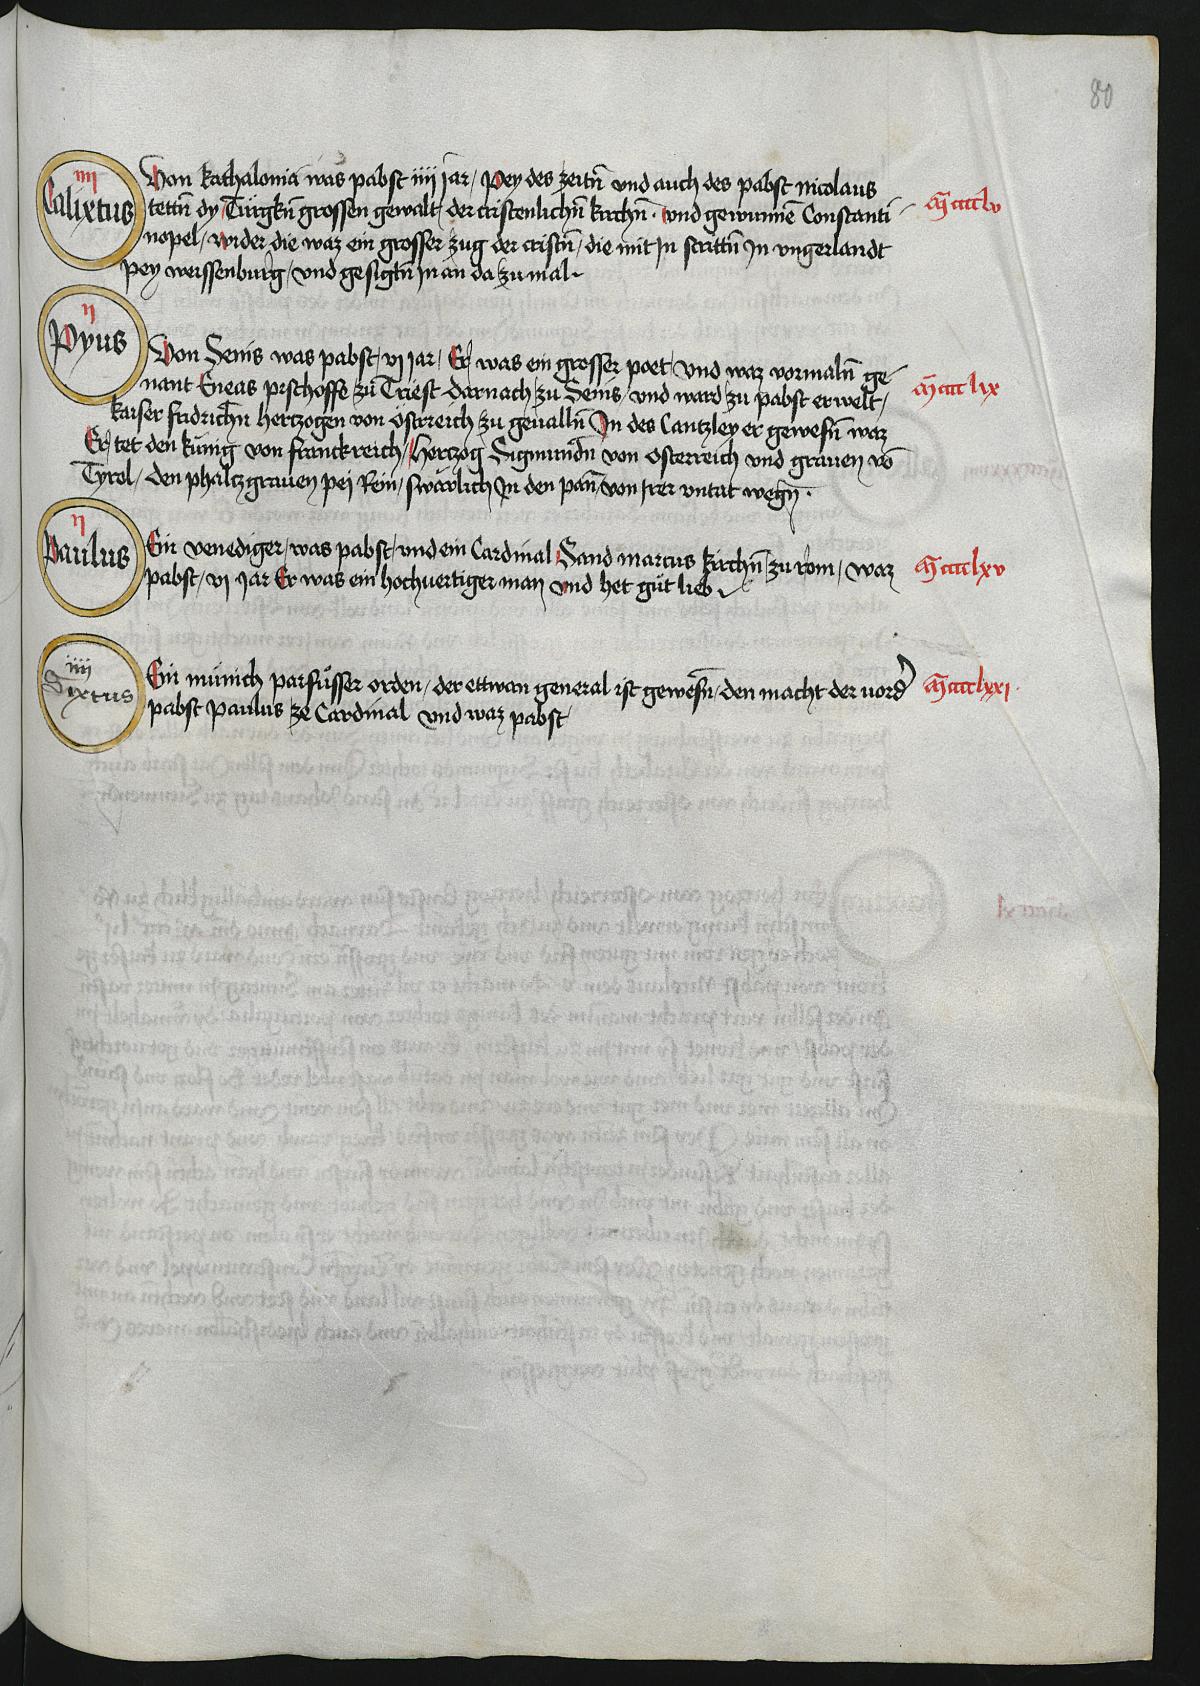 80
iiii
Calixtus
Von kathalonia was pabst iiii jar / Pey des zeitn̄ vnd auch des pabst nicolaus
tettn̄ dy Türgkn̄ grossen gewalt / der cristenlichn̄ kirchn̄ · vnd gewunnē Constanti
nopel / wider die waz ein grosser zug der cristn̄ / die mit In strittn̄ In vngerlandt
pey weissenburg / vnd gesigtn̄ In an da zu mal ·
Mcccclv
ij
Pyus
Von Senis was pabst / vj jar / Er was ein grosser poet / vnd waz vormaln̄ ge
nant Eneas pischoffe zu Triest darnach zu Senis / vnd ward zu pabst erwelt /
kaiser fridrichn̄ hertzogen von Österreich zu geualln̄ In des Cantzley er gewesn̄ waz
Er tet den künig von franckreich / Hertzog Sigmundn̄ von osterreich vnd grauen vō
Tyrol / den phaltzgrauen pej Rein / swärlich In den pan̄ / von irer vntat wegn̄ ·
Mcccclix
ij
Paulus
Ein venediger / was pabst / vnd ein Cardinal Sand marcus kirchn̄ zu rom / waz
pabst / vj jar Er was ein hochuertiger man vnd het güt lieb
Mcccclxv
iiii
Sixtus
Ein münich parfüsser orden / der ettwan general ist gewesn̄ / den macht der uord̕
pabst paulus ze Cardinal vnd waz pabst
Mcccclxxj ·